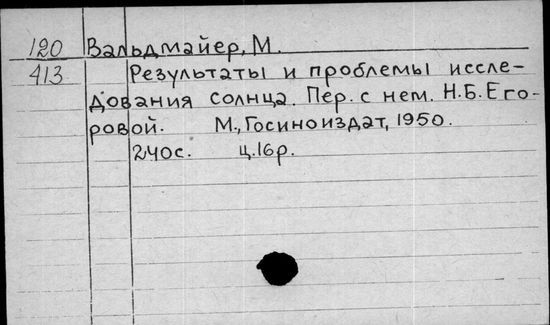 120 Вальдмайер, М.
413 Результаты и проблемы иссле-
дования солнца. Пер. с нем. Н.Б. Его-
ровой. М., Госиноиздат, 1950.
240с. ц.16р.